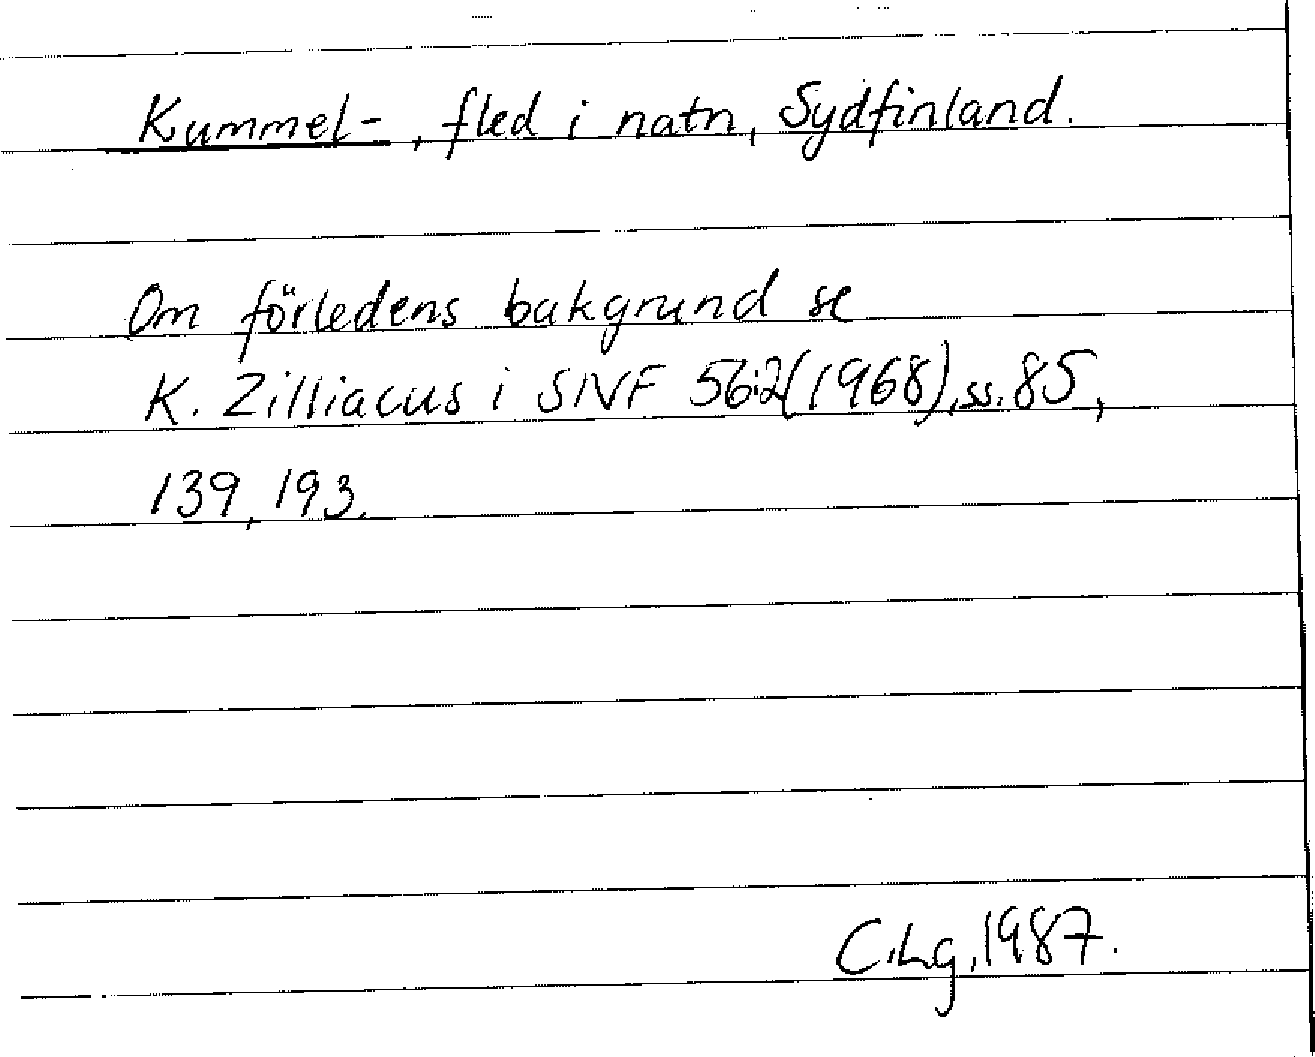 Kummel-, fled i natn, Sydfinland.
Om förledens bakgrund se
K. Zilliacus i SNF 56:2(1968), ss. 85,
139, 193.
C.Lg, 1987.